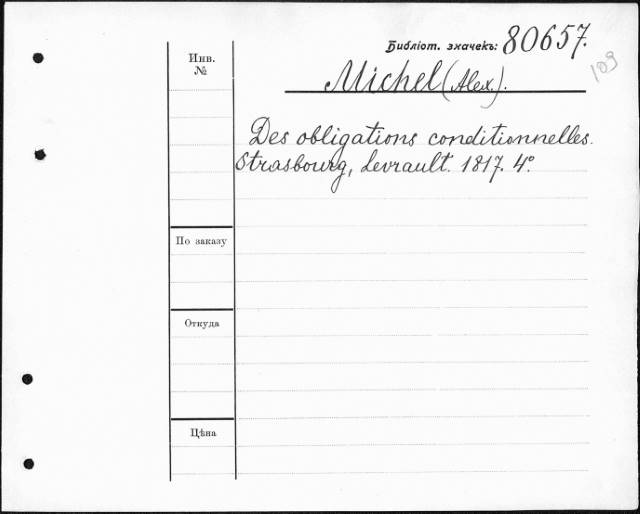 Библіот. значекъ: 80657.
109
Инв.
№
Michel (Alex.).
Des obligations conditionnelles.
Strasbourg, Levrault. 1817. 4°.
По заказу
Откуда
Цѣна